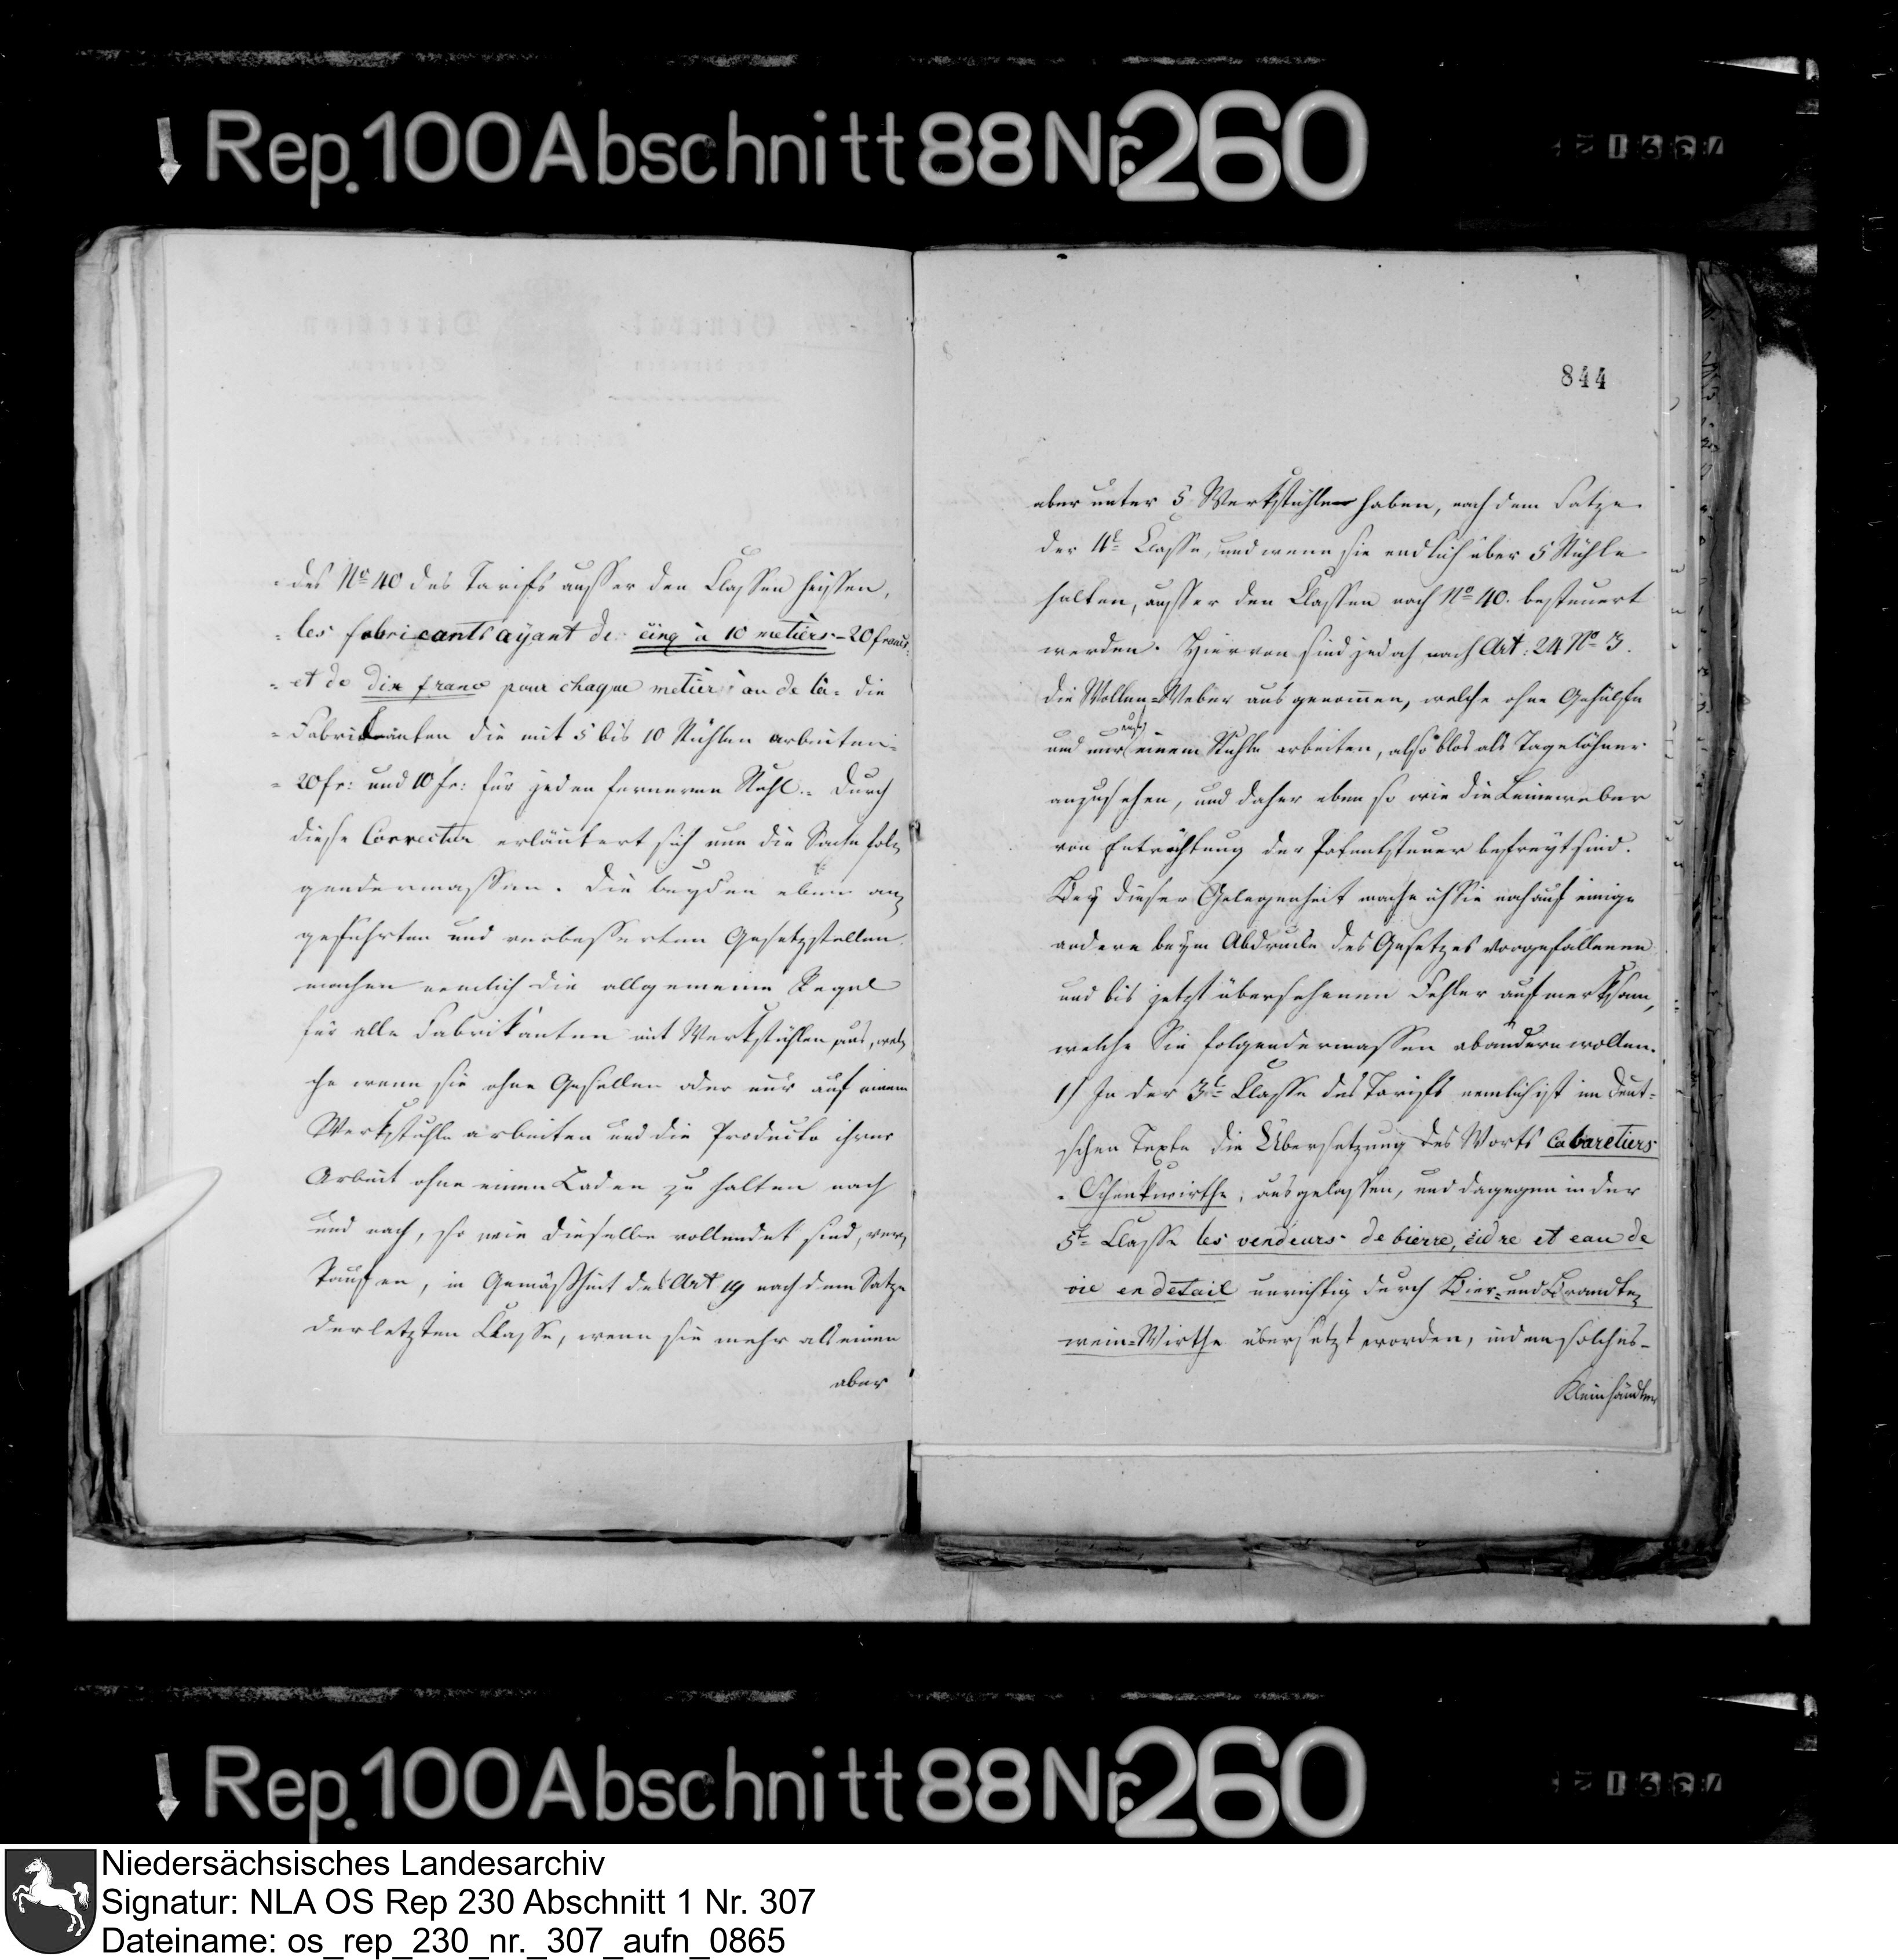 Rep. 100 Abschnitt 88 Nr. 260
des No 40 des Tarifs ausser den Classen heissen,
les fabricants ayant de cinq à 10 metiers - 20 francs
et de dix franc pour chaque metier au de là. die
Fabrikanten die mit 5 bis 10 Stühlen arbeiten
20 fr: und 10 fr: für jeden ferneren Stuhl. Durch
diese Correctur erläutert sich nun die Sache fol-
gendermassen. Die beyden eben an-
geführten und verbesserten Gesetzstellen
machen nemlich die allgemeine Regel
für alle Fabrikanten mit Werkstühlen aus, wel-
che wenn sie ohne Gesellen oder nur auf einem
Werkstuhle arbeiten und die Producte ihrer
Arbeit ohne einen Laden zu halten nach
und nach, so wie dieselben vollendet sind, ver-
kaufen, in Gemäßheit des Art 19 nach dem Satze
der letzten Classe, wenn sie mehr als einen
aber
844
aber unter 5 Werkstühlen haben, nach dem Satze
der 4t Classe, und wenn sie endlich über 5 Stühle
halten, ausser den Classen nach No 40. besteuert
werden. Hiervon sind jedoch nach Art: 24 No 3.
die Wollen-Weber ausgenommen, welche ohne Gehülfen
und nur auf einem Stuhle arbeiten, also blos als Tagelöhner
anzusehen, und daher eben so wie die Leineweber
von Entrichtung der Patentsteuer befreyt sind.
Bey dieser Gelegenheit mache ich Sie noch auf einige
andere beym Abdrucke des Gesetzes vorgefallenen
und bis jetzt übersehenen Fehler aufmerksam,
welche Sie folgendermassen abändern wollen.
1) In der 3t Classe des Tarifs nemlich ist im Deut-
schen Texte die Übersetzung des Worts Cabaretiers
Schenkwirthe, ausgelassen, und dagegen in der
5t Classe les vendeurs de bierre, cidre et eau de
vie en detail unrichtig durch Bier- und Brandte-
wein-Wirthe übersetzt worden, indem solches
Kleinhändler
Rep. 100 Abschnitt 88 Nr. 260
Niedersächsisches Landesarchiv
Signatur: NLA OS Rep 230 Abschnitt 1 Nr. 307
Dateiname: os_rep_230_nr._307_aufn_0865